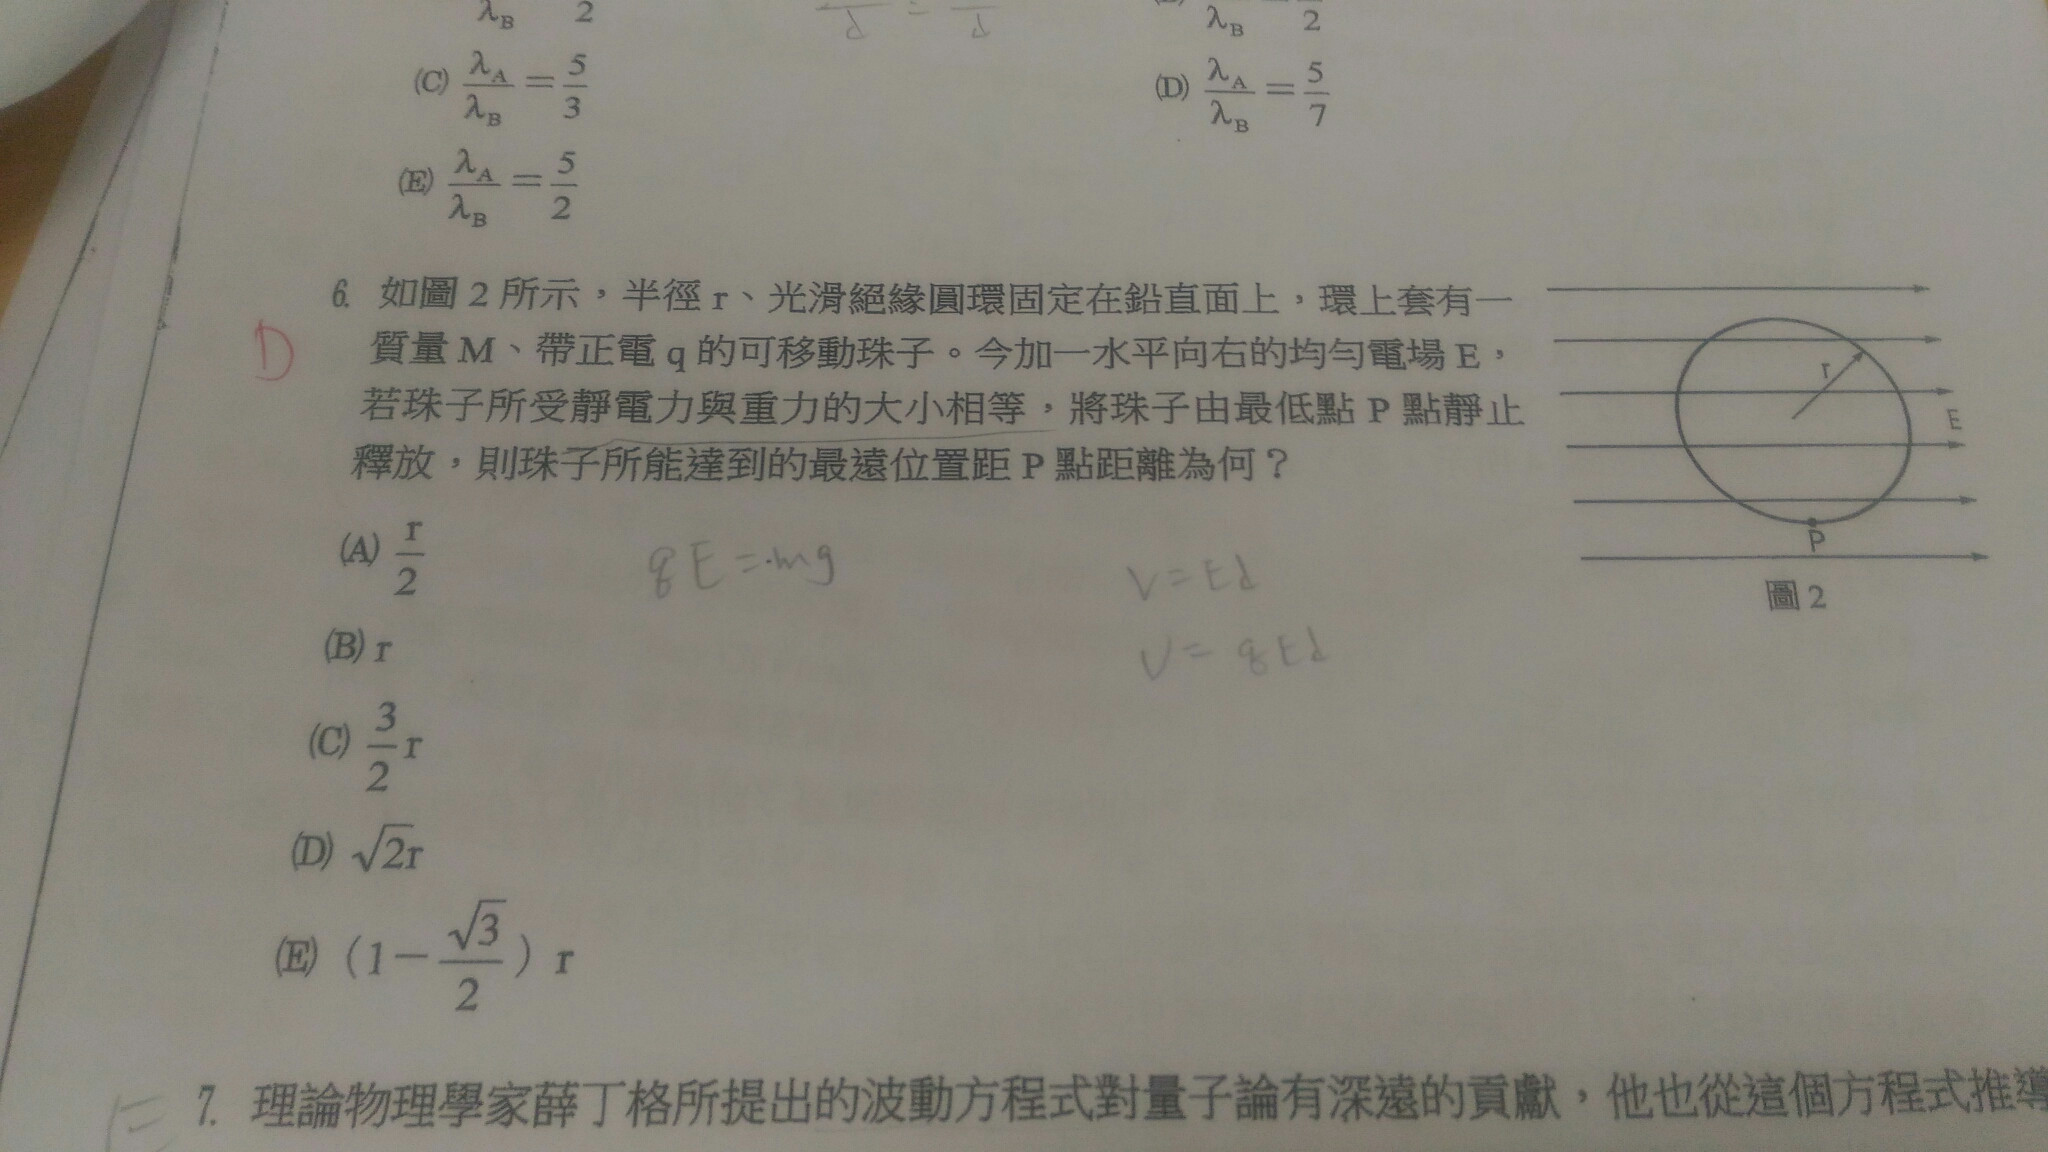 λB 2
d = d
λB 2
(C) λA/λB = 5/3
(D) λA/λB = 5/7
(E) λA/λB = 5/2
6. 如圖 2 所示，半徑 r、光滑絕緣圓環固定在鉛直面上，環上套有一
D
質量 M、帶正電 q 的可移動珠子。今加一水平向右的均勻電場 E，
若珠子所受靜電力與重力的大小相等，將珠子由最低點 P 點靜止
釋放，則珠子所能達到的最遠位置距 P 點距離為何？
r
E
P
圖 2
(A) r/2
qE = mg
V = Ed
U = qEd
(B) r
(C) 3/2 r
(D) √2r
(E) (1－√3/2) r
7. 理論物理學家薛丁格所提出的波動方程式對量子論有深遠的貢獻，他也從這個方程式推導